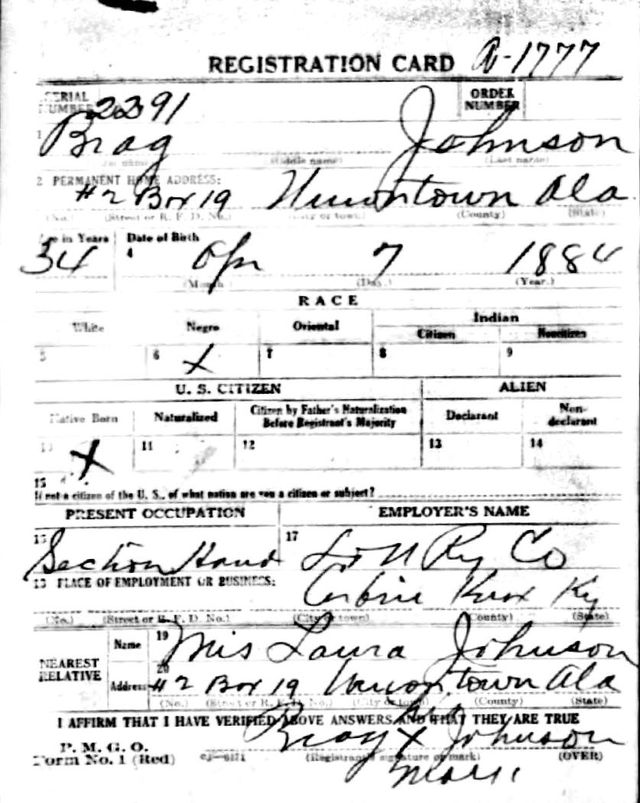 REGISTRATION CARD A-1777
SERIAL NUMBER 2391 ORDER NUMBER
1 Brag Johnson
(Middle name) (Last name)
2 PERMANENT HOME ADDRESS:
#2 Box 19 Uniontown Ala
(No.) (Street or R. F. D. No.) (City or town) (County) (State)
Age in Years Date of Birth
34 4 Apr 7 1884
(Month.) (Day.) (Year.)
RACE
White Negro Oriental Indian
Citizen Noncitizen
5 6 X 7 8 9
U. S. CITIZEN ALIEN
Native Born Naturalized Citizen by Father's Naturalization Before Registrant's Majority Declarant Non-declarant
10 X 11 12 13 14
15
If not a citizen of the U. S., of what nation are you a citizen or subject?
PRESENT OCCUPATION EMPLOYER'S NAME
Section Hand 17 L & N Ry Co
18 PLACE OF EMPLOYMENT OR BUSINESS:
Corbin Knox Ky
(No.) (Street or R. F. D. No.) (City or town) (County) (State)
NEAREST RELATIVE
Name 19 Mis Laura Johnson
Address 20 #2 Box 19 Uniontown Ala
(No.) (Street or R. F. D. No.) (City or town) (County) (State)
I AFFIRM THAT I HAVE VERIFIED ABOVE ANSWERS AND THAT THEY ARE TRUE
P. M. G. O.
Form No. 1 (Red) Brag X Johnson
(Registrant's signature or mark) (OVER)
Mark